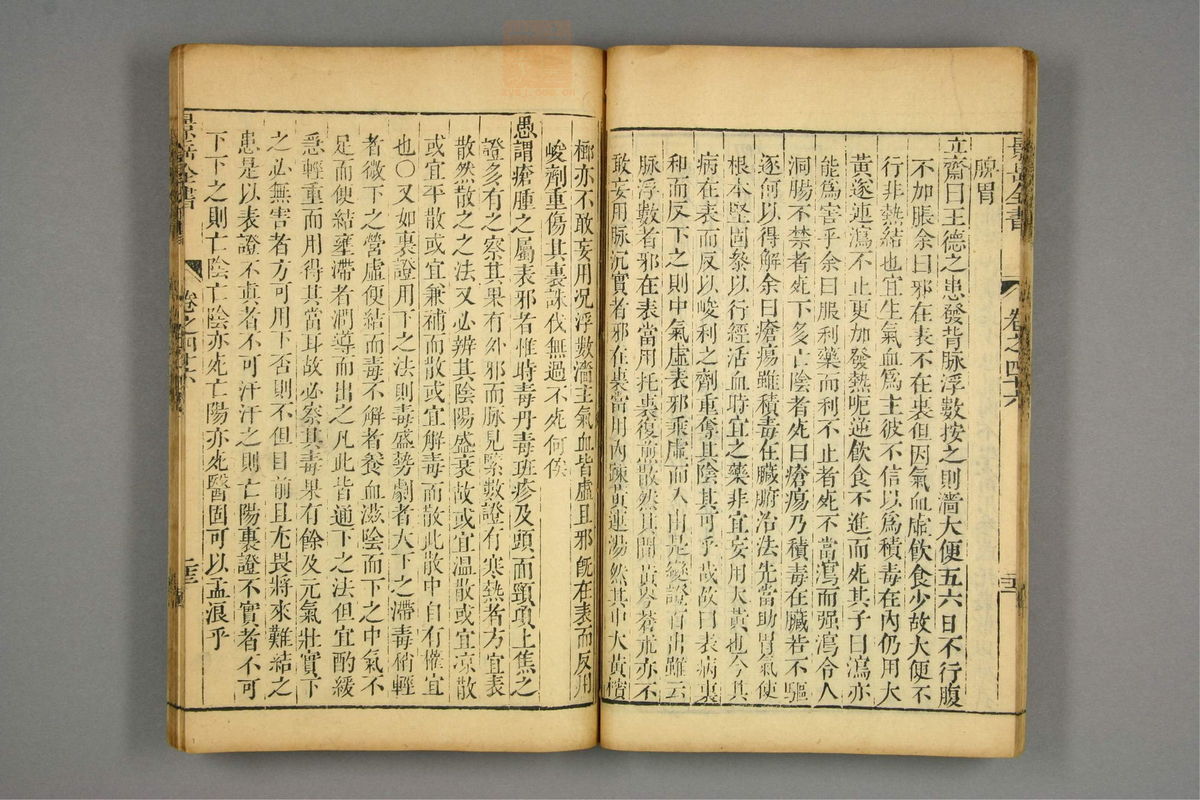 景岳全書
卷之四十六
腴胃
立齋曰王德之患發背脉浮數按之則濇大便五六日不行腹
不加脹余曰邪在表不在裏但因氣血虛飲食少故大便不
行非熱結也宜生氣血爲主彼不信以爲積毒在內仍用大
黃遂連瀉不止更加發熱呃逆飲食不進而死其子曰瀉亦
能爲害乎余曰服利藥而利不止者死不當瀉而强瀉令人
洞腸不禁者死下多亡陰者死曰瘡瘍乃積毒在臟若不驅
逐何以得解余曰瘡瘍雖積毒在臟腑治法先當助胃氣使
根本堅固參以行經活血時宜之藥非宜妄用大黃也今其
病在表而反以峻利之劑重奪其陰其可乎哉故曰表病裏
和而反下之則中氣虛表邪乘虛而入由是變證百出雖云
脉浮數者邪在表當用托裏復煎散然其間黃芩蒼朮亦不
敢妄用脉沉實者邪在裏當用內疎黃連湯然其中大黃檳
榔亦不敢妄用况浮數濇主氣血皆虛且邪旣在表而反用
峻劑重傷其裏誅伐無過不死何俟
愚謂瘡腫之屬表邪者惟時毒丹毒班疹及頭面頸項上焦之
證多有之察其果有外邪而脉見緊數證有寒熱者方宜表
散然散之之法又必辨其陰陽盛衰故或宜温散或宜凉散
或宜平散或宜兼補而散或宜解毒而散此散中自有權宜
也○又如裏證用下之法則毒盛勢劇者大下之滯毒稍輕
者微下之營虛便結而毒不解者養血滋陰而下之中氣不
足而便結壅滯者潤導而出之凡此皆通下之法但宜酌緩
急輕重而用得其當耳故必察其毒果有餘及元氣壯實下
之必無害者方可用下否則不但目前且尤畏將來難結之
患是以表證不真者不可汗汗之則亡陽裏證不實者不可
下下之則亡陰亡陰亦死亡陽亦死醫固可以孟浪乎
景岳全書
卷之四十六